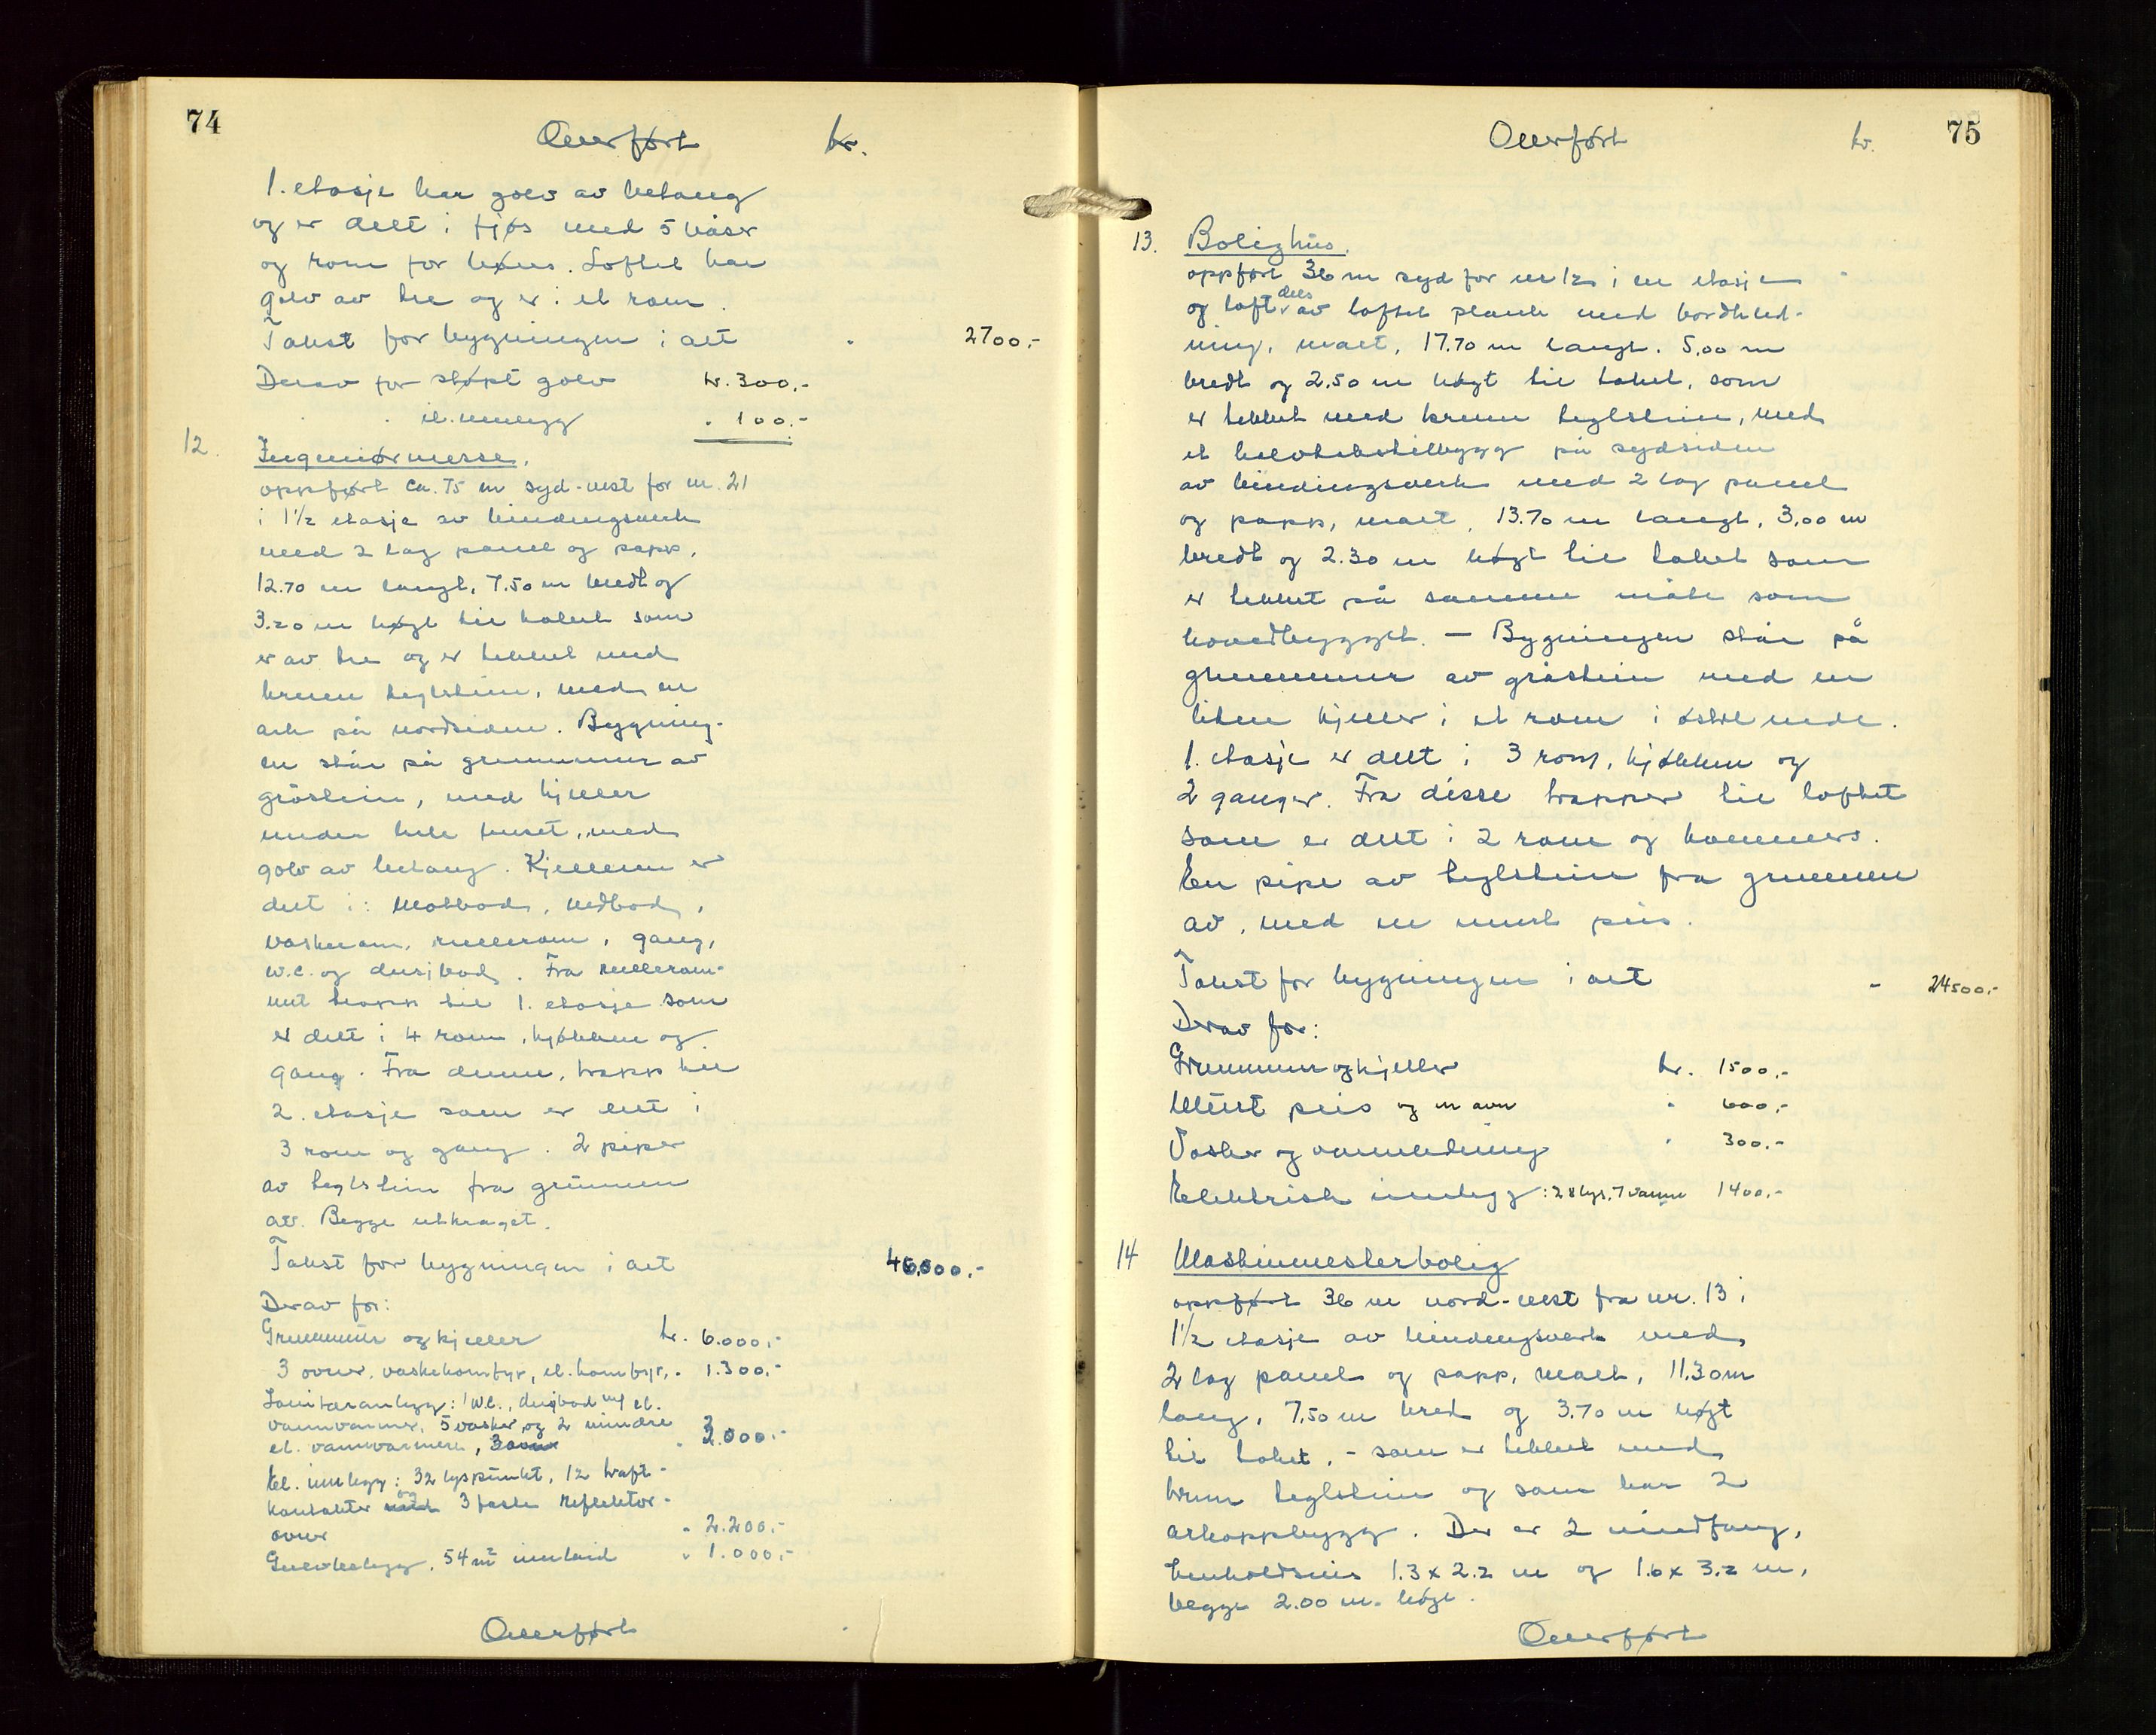 74
Overført kr.
1. etasje har golv av betong
og er delt i fjøs med 5 båser
og rom for høns. Loftet har
golv av tre og er i et rom.
Takst for bygningen i alt " 2700,-
Derav for støpt golv kr. 300,-
" " el. innlegg " 100,-
12. Ingeniørmesse.
oppført ca. 75 m syd-vest for nr. 21
i 1 1/2 etasje av bindingsverk
med 2 lag panel og papp,
12.70 m langt, 7.50 m bredt og
3.20 m høgt til taket som
er av tre og er tekket med
krum teglstein, med en
ark på nordsiden. Bygning-
en står på grunnmur av
gråstein, med kjeller
under hele huset, med
golv av betong. Kjelleren er
delt i: Matbod, vedbod,
vaskerom, rullerom, gang,
w.c. og dusjbad. Fra rullerom-
met trapp til 1. etasje som
er delt i 4 rom, kjøkken og
gang. Fra denne, trapp til
2. etasje som er delt i
3 rom og gang. 2 piper
av teglstein fra grunnen
av. Begge utkraget.
Takst for bygningen i alt 46.000,-
Derav for:
Grunnmur og kjeller kr. 6.000,-
3 ovner, vaskekomfyr, el. komfyr, " 1.300,-
Sanitæranlegg: 1 W.C., dusjbad m/ el.
vannvarmer, 5 vasker og 2 mindre
el. vannvarmere, 3 ovner " 3.000,-
El. innlegg: 32 lyspunkt, 12 kraft-
kontakter med og 3 faste reflektor-
ovner " 2.200,-
Gulvbelegg, 54 m² innlaid " 1.000,-
Overført
75
Overført kr.
13. Bolighus.
oppført 36 m syd for nr 12 i en etasje
og loft dels av loftet plank med bordkled-
ning, malt, 17.70 m langt. 5,00 m
bredt og 2.50 m høgt til taket, som
er tekket med krum teglstein, med
et halvtakstilbygg på sydsiden
av bindingsverk med 2 lag panel
og papp, malt, 13.70 m langt, 3,00 m
bredt og 2.30 m høgt til taket som
er tekket på samme måte som
hovedbygget. — Bygningen står på
grunnmur av gråstein med en
liten kjeller i et rom i østre ende.
1. etasje er delt i 3 rom, kjøkken og
2 ganger. Fra disse trapper til loftet
som er delt i 2 rom og kammers.
En pipe av teglstein fra grunnen
av, med en murt peis.
Takst for bygningen i alt " 24500,-
Derav for:
Grunnmur og kjeller kr. 1500,-
Murt peis og en ovn " 600,-
Vasker og vannledning " 300,-
Elektrisk innlegg: 28 lys, 7 varme 1400,-
14 Maskinmesterbolig
oppført 36 m nord-vest fra nr. 13 i
1 1/2 etasje av bindingsverk med
2 lag panel og papp, malt, 11.30 m
lang, 7,50 m bred og 3.70 m høgt
til taket, - som er tekket med
krum teglstein og som har 2
arkoppbygg. Der er 2 vindfang,
henholdsvis 1.3 x 2.2 m og 1.6 x 3.2 m,
begge 2.00 m. høge.
Overført